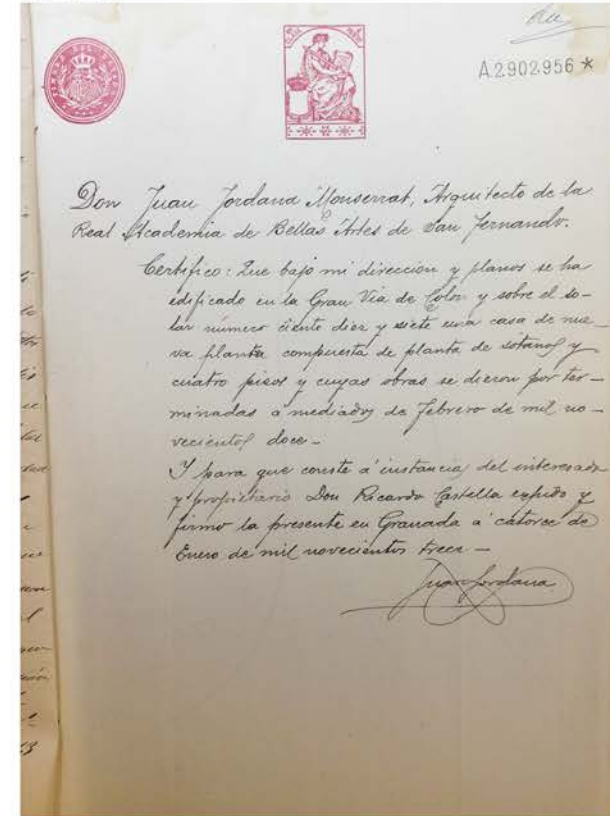 A.2902.956 *
Don Juan Jordana Monserrat, Arquitecto de la
Real Academia de Bellas Artes de San Fernando.
Certifico: Que bajo mi direccion y planos se ha
edificado en la Gran Via de Colon y sobre el so-
lar número ciento diez y siete una casa de nue-
va planta compuesta de planta de sótanos y
cuatro pisos y cuyas obras se dieron por ter-
minadas á mediados de Febrero de mil no-
vecientos doce-
Y para que conste á instancia del interesado
y propietario Don Ricardo Castella expido y
firmo la presente en Granada á catorce de
Enero de mil novecientos trece-
Juan Jordana